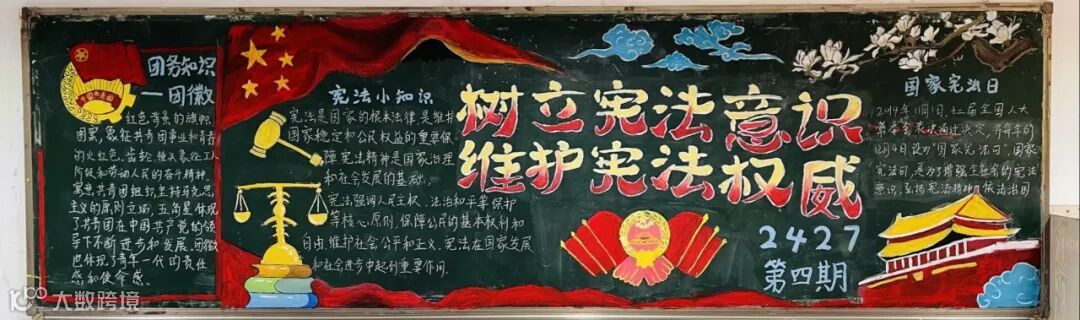 团务知识
—团徽
红色
图案,象征共青团事业和青春
的火红色。齿轮、麦穗象征工人
阶级和劳动人民的奋斗精神,
寓意共青团组织坚持马克思
主义的原则立场,五角星体现
了共青团在中国共产党的领
导下不断进步和发展,团徽
也体现了青年一代的责任
感和使命感。
宪法小知识
宪法是国家的根本法律,是维护
国家稳定和公民权益的重要保
障。宪法精神是国家治理
和社会发展的基础。
宪法强调人民主权、法治和平等保护
等核心原则,保障公民的基本权利和
自由,维护社会公平和正义。宪法在国家发展
和社会进步中起到重要作用。
树立宪法意识
维护宪法权威
2427
第四期
国家宪法日
2014年11月1日,十二届全国人大
常委会表决通过决定,将每年的
12月4日设为“国家宪法日”。国家
宪法日,是为了增强全社会的宪法
意识,弘扬宪法精神,依法治国
大数跨境